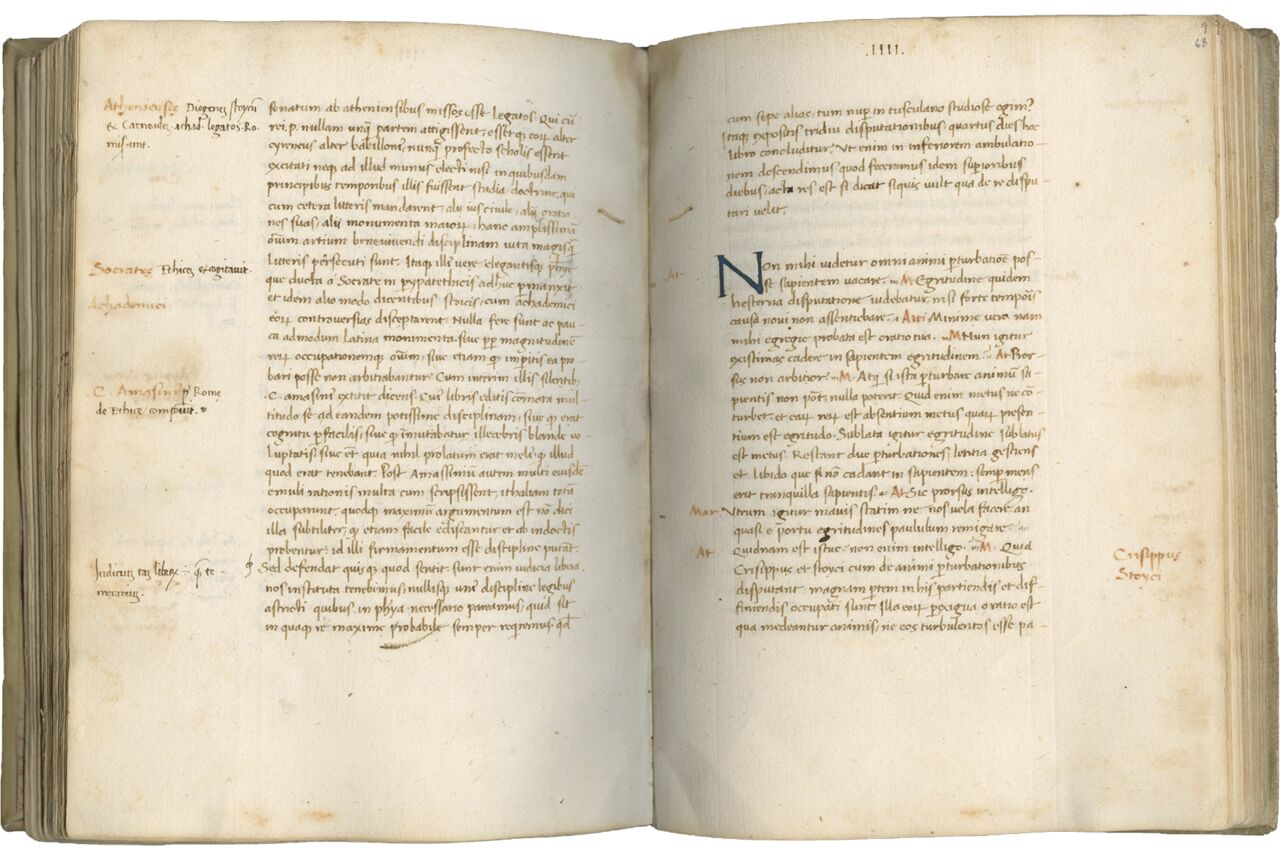 Athenienses Diogenem stoycū
& Carneadē achad. legatos Ro-
miserunt.
Socrates Ethicen excogitavit.
Achademici
C. Amasinius pr̄ Rome
de Ethice composuit.
Iudicium tan liberꝝ
senatum ab atheniensibus missos esse legatos. Qui cū
rei.p. nullam unq̄ partem attigissent, essetq; eorꝝ alter
cyreneus alter babilloni9, nunq̄ profecto scholis essent
excitati neq; ad illud munus electi nisi in quibusdam
principibus temporibus illis fuissent studia doctrine, qui
cum cetera litteris mandarent, alij ius civile, alij oratio
nes suas, alij monumenta maiorꝝ, hanc amplissimā
oīum artium bene vivendi disciplinam vita magisq̄
litteris persecuti sunt. Itaq; illi9 vere elegantisq; phye
que ducta a Socrate in pypatethicis adhuc pmansit
et idem alio modo dicentibus stoicis, cum achademici
eorꝝ controversias disceptarent. Nulla fere sunt ac pau
ca admodum latina monumenta. sive ppr magnitudinē
rerꝝ occupationemq; oīum, sive etiam qꝫ impitis ea pro
bari posse non arbitrabantur. Cum interim illis silentib;
C. amasini9 extitit dicens. Cui9 libris editis cōmota mul
titudo se ad eandem potissime disciplinam, sive qꝫ erat
cognitu pfacilis, sive qꝫ invitabatur illecebris blande vo
luptatis, sive et quia nihil prolatum erat meli9 qꝫ illud
quod erat tenebant. Post Amassiniū autem multi eiusdē
emuli rationis multa cum scripsissent, ithaliam totā
occuparunt, quodqꝫ maximū argumentum est nō dici
illa subtiliter, qꝫ etiam facile ediscantur et ab indoctis
probentur: id illi firmamentum esse discipline putāt.
Sed defendat quisqꝫ quod sentit sunt enim iudicia libera
nos instituta tenebimus, nullisqꝫ uni9 discipline legibus
astricti quibus in phya necessario pareamus, quid sit
in quaqꝫ re maxime probabile semper reqremus. qd̄
.IIII.
68
cum sepe alias, tum nup in tusculano studiose egim9
Itaqꝫ expositis tridui disputationibus, quartus dies hoc
libro concluditur. Ut enim in inferiorem ambulatio-
nem descendimus quod feceramus idem supioribus
diebus, acta res est si dicat siquis vult qua de re dispu-
tari velit.
Non mihi videtur omni animi pturbatiōe pos-
se sapientem vacare. M Egritudine quidem
hesterna disputatione videbatur, nisi forte temporis
causa novi non assentiebare. At Minime vero nam
mihi egregie probata est oratio tua. M Nun igitur
existimas cadere in sapientem egritudinem. At Pror-
sus non arbitror. M. Atqꝫ si ista pturbare animū sa-
pientis non pōt, nulla poterit. Quid enim metus ne cō-
turbet, et earꝝ rerꝝ est absentium metus quarꝝ presen-
tium est egritudo. Sublata igitur egritudine sublatus
est metus. Restant due pturbationes, letitia gestiens
et libido que si nō cadant in sapientem, semp mens
erit tranquilla sapientis. At Sic prorsus intelligo.
Mar Utrum igitur mavis statim ne nos vela facere, an
quasi e portu egritudines paululum remigare.
At Quidnam est istuc, non enim intelligo. M. Quia
Crisippus et stoyci cum de animi pturbationibus
disputant, magnam ptem in his partiendis et dif-
finiendis occupati sunt, illa eorꝝ pexigua oratio est
qua medeantur animis, ne eos turbulentos esse pa-
Crisippus
Stoyci